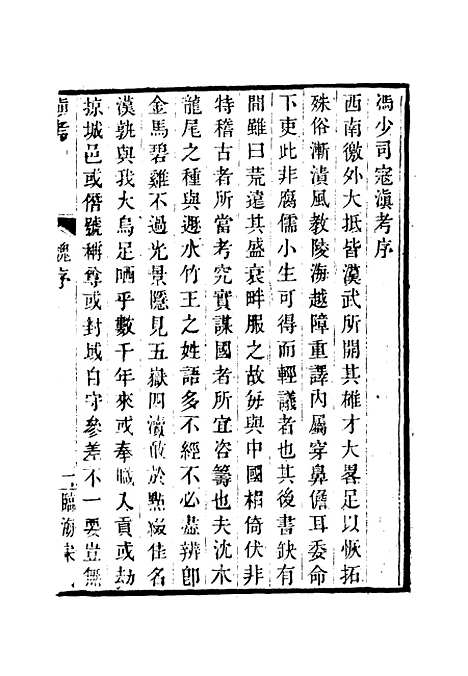 馮少司寇滇考序
西南徼外大抵皆漢武所開其雄才大畧足以恢拓
殊俗漸漬風教陵海越障重譯內屬穿鼻儋耳委命
下吏此非腐儒小生可得而輕議者也其後書缺有
間雖曰荒遠其盛衰畔服之故每與中國相倚伏非
特稽古者所當考究實謀國者所宜咨籌也夫沈木
龍尾之種與遯水竹王之姓語多不經不必盡辨卽
金馬碧雞不過光景隱見五嶽四瀆敢於點綴佳名
漢孰與我大烏足哂乎數千年來或奉職入貢或劫
掠城邑或僭號稱尊或封域自守參差不一要豈無
滇考
序
一
臨海